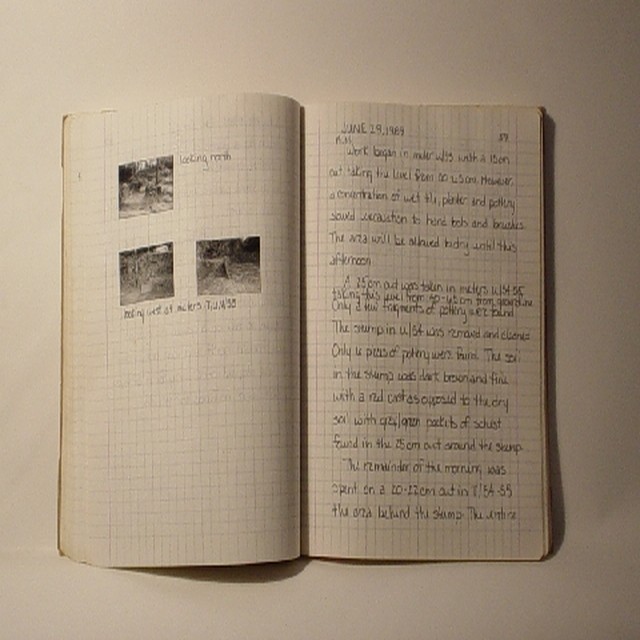 looking north
looking west at meters T,U,V/55
JUNE 29, 1989
Work began in meter u/45 with a 15cm
cut taking the level from 30-45cm. However,
a concentration of wet tile, plaster and pottery
saved excavation to hand tools and brushes.
The area will be allowed to dry until this
afternoon.
A 25cm cut was taken in meters u/54-55
taking this level from 40-65cm from groundline
Only a few fragments of pottery were found
The stump in u/54 was removed and cleaned
Only 6 pieces of pottery were found. The soil
in the stump was dark brown and fine
with a red cast as opposed to the dry
soil with grey/green pockets of schist
found in the 25cm cut around the stump.
The remainder of the morning was
spent on a 20-22cm cut in T/54-55
the area behind the stump. The entire